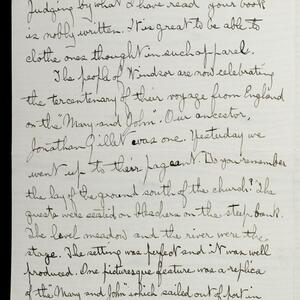 Judging by what I have read your book
is nobly written. It is great to be able to
clothe ones thought in such apparel.
The people of Windsor are now celebrating
the tercentenary of their voyage from England
on the "Mary and John". Our ancestor,
Jonathan Gillet was one. Yesterday we
went up to their pageant. Do you remember
the lay of the ground south of the church? The
guests were seated on bleachers on the steep bank.
The level meadow and the river were the
stage. The setting was perfect and it was well
produced. One picturesque feature was a replica
of the Mary and John which sailed out of port in